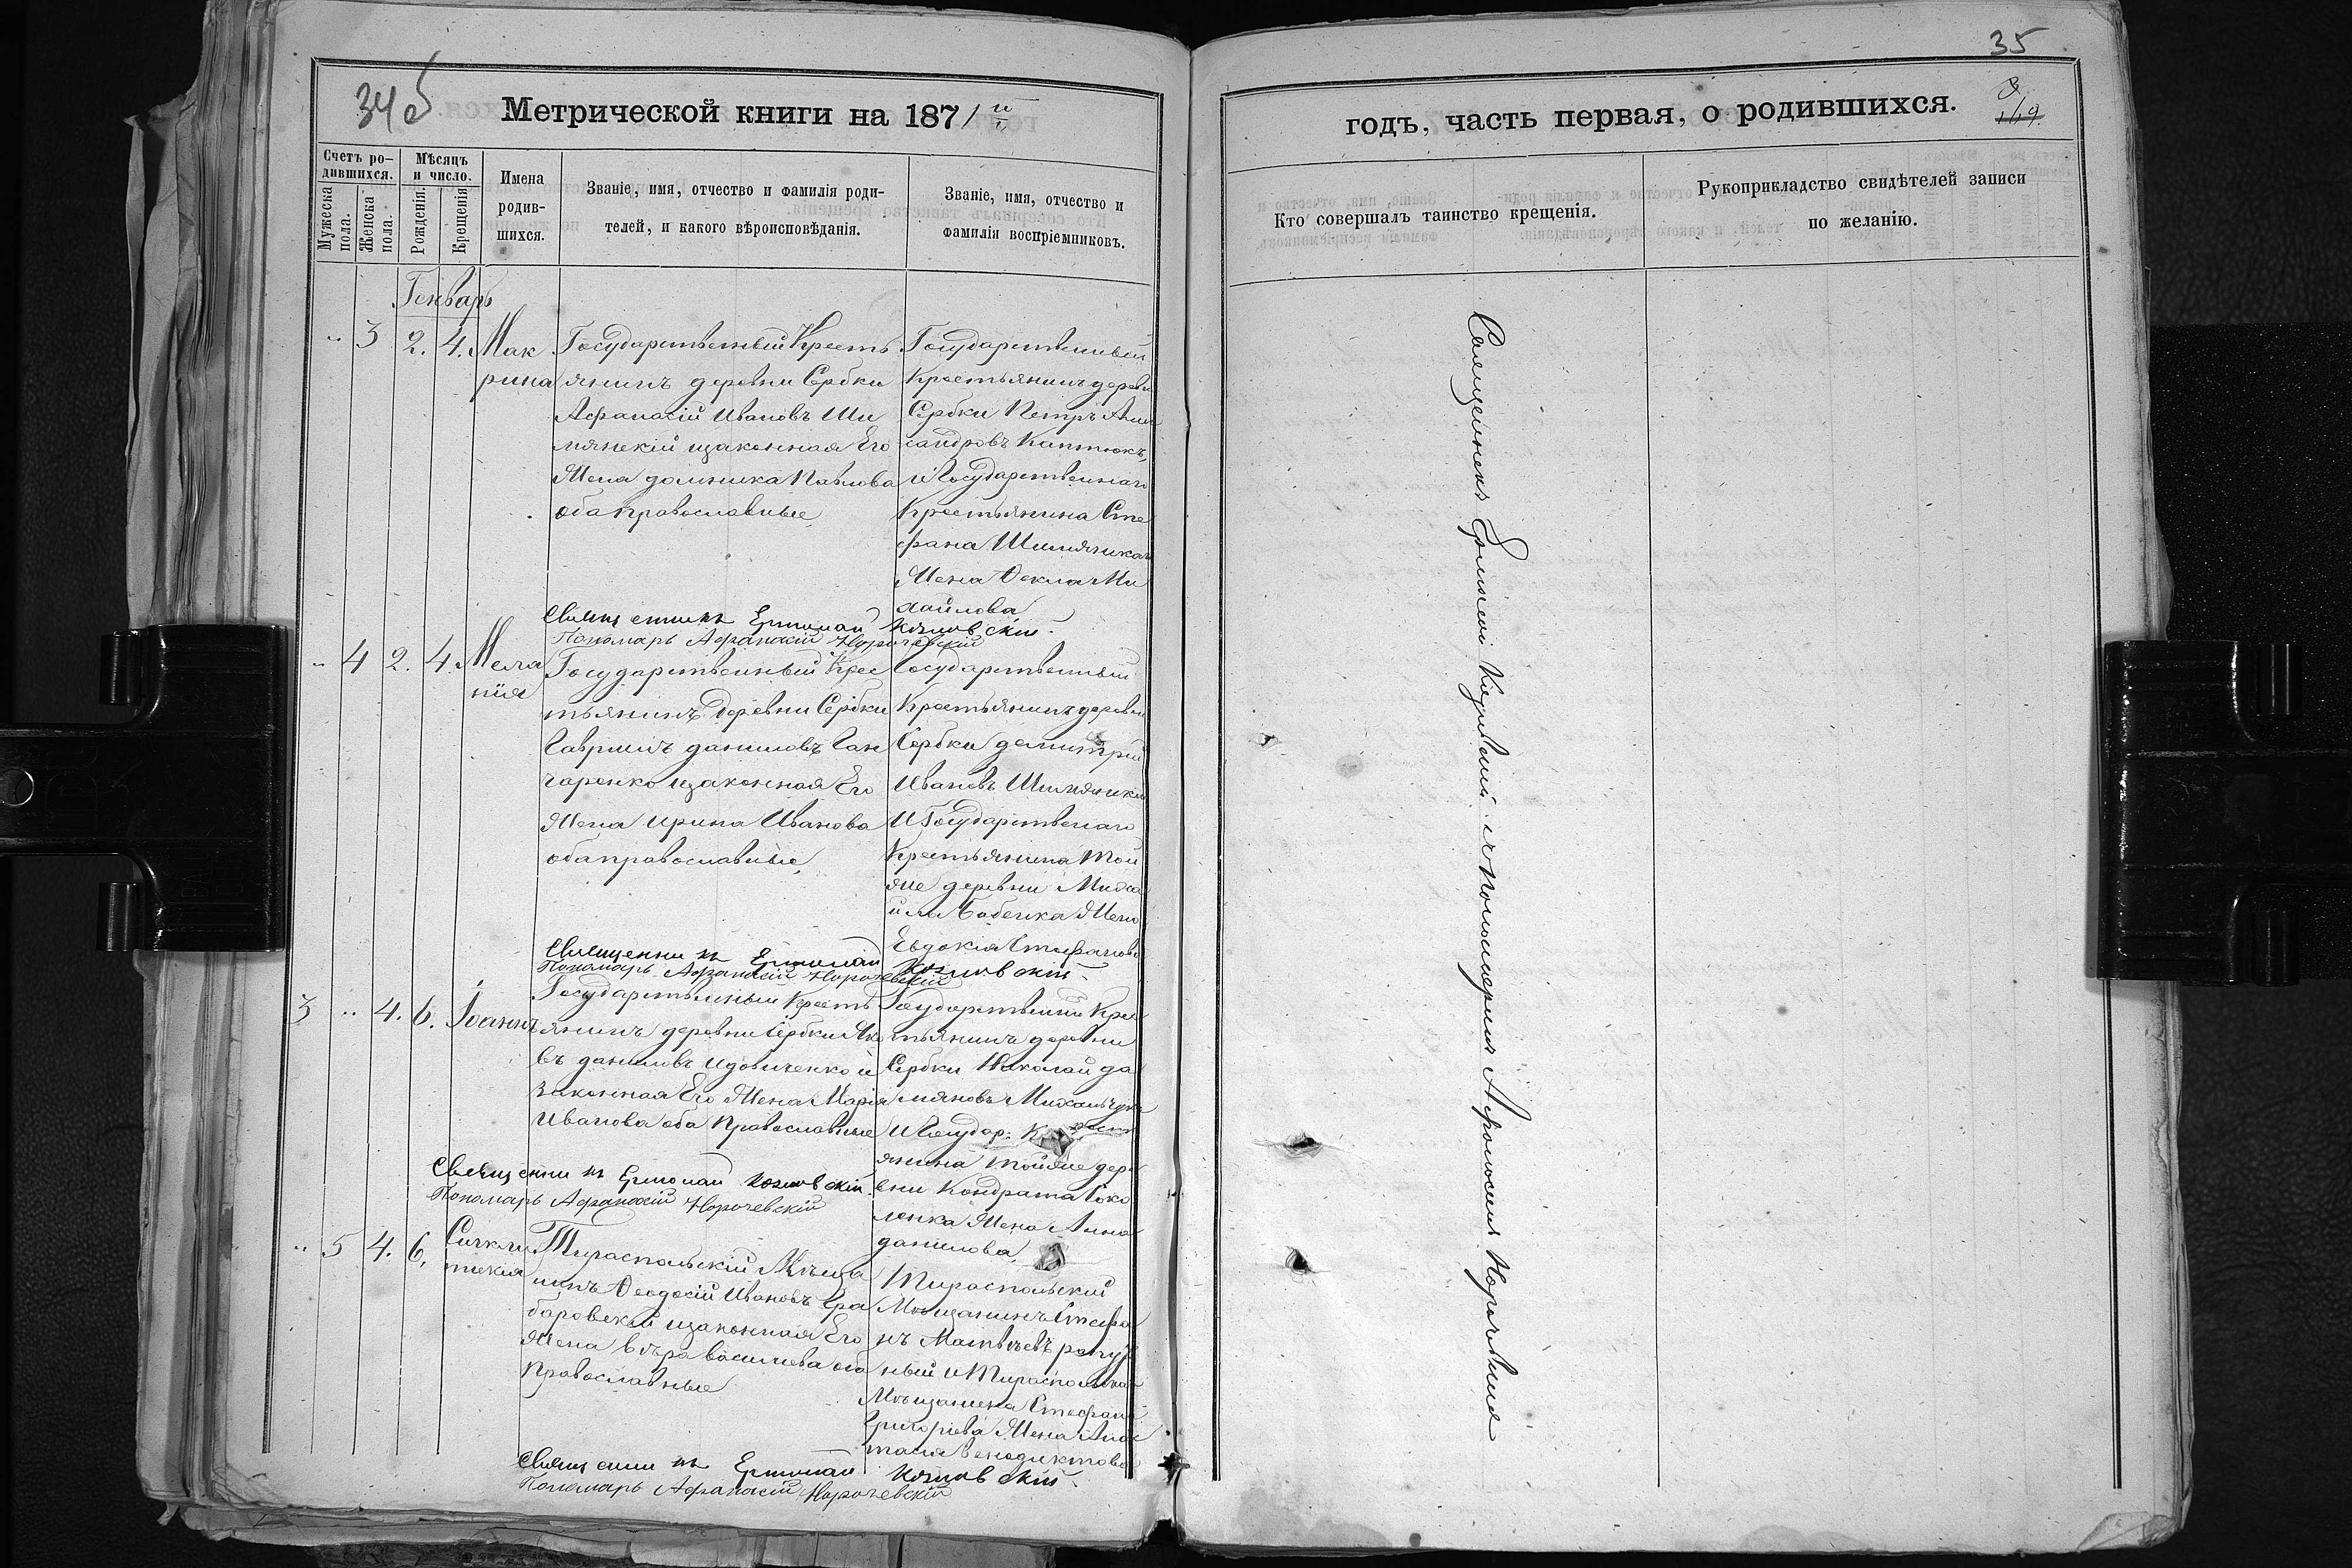 34об
Метрической книги на 1871й
Счетъ ро-
дившихся.
Мужеска
пола.
Женска
пола.
Мѣсяцъ
и число.
Рожденія.
Крещенія
Имена
родив-
шихся.
Званіе, имя, отчество и фамилія роди-
телей, и какого вѣроисповѣданія.
Званіе, имя, отчество и
фамилія воспріемниковъ.
Генварь
" 3 2. 4. Мак
рина
Государственный Кресть
янинъ деревни Сербки
Афанасій Ивановъ Ши
мянскій изаконная Его
Жена домника Павлова
оба православные
Государственный
Крестьянинъ деревн
Сербки Петръ Алек
сандровъ Каптюкъ,
и Государственнаго
Крестьянина Сте
фана
Жена Ѳекла Ми
хайлова
Священникъ Ермолай Козловскій.
Пономарь Афанасій Норочевскій
" 4 2. 4. Мела
нія
Государственный Крес
тьянинъ Деревни Сербки
Гавріилъ даниловъ Ган
чаренко изаконная Его
Жена Ирина Иванова
оба православные,
Государственный
Крестьянинъ деревни
Сербки димитрій
Ивановъ
И Государственаго
Крестьянина той
же деревни Миха
йла Бабенка Жена
Евдокія Стефанова
Священникъ Ермолай Козловскій.
Пономарь Афанасій Норочевскій
3 " 4. 6. Іоаннъ
Государственный Кресть
янинъ деревни Сербки Яко
въ даниловъ Идовиченко и
законная Его Жена Марія
Иванова оба Православные
Государственный Крес
тьянинъ деревни
Сербки Николай да
мяновъ
И Государ:
янина тойже дере
вни Кондрата Соко
ленка Жена Анна
данилова
Священникъ Ермолай Козловскій.
Пономарь Афанасій Норочевскій
" 5 4. 6.
Тираспольскій Мѣща
нинъ Ѳеодосій Ивановъ Гра
баровскій изаконная Его
Жена Вѣра Василіева оба
Православные
Тираспольскій
Мѣщанинъ Стефа
нъ Матвѣевъ
ный и Тираспольскаго
Мѣщанина Стефана
Григоріева Жена Анас
тасія Венедиктова
Священникъ Ермолай Козловскій.
Пономарь Афанасій Норочевскій
35
годъ, часть первая, о родившихся.
Кто совершалъ таинство крещенія.
Рукоприкладство свидѣтелей записи
по желанію.
Священникъ Ермолай Козловскій с пономаремъ Афанасіемъ Норочевскимъ